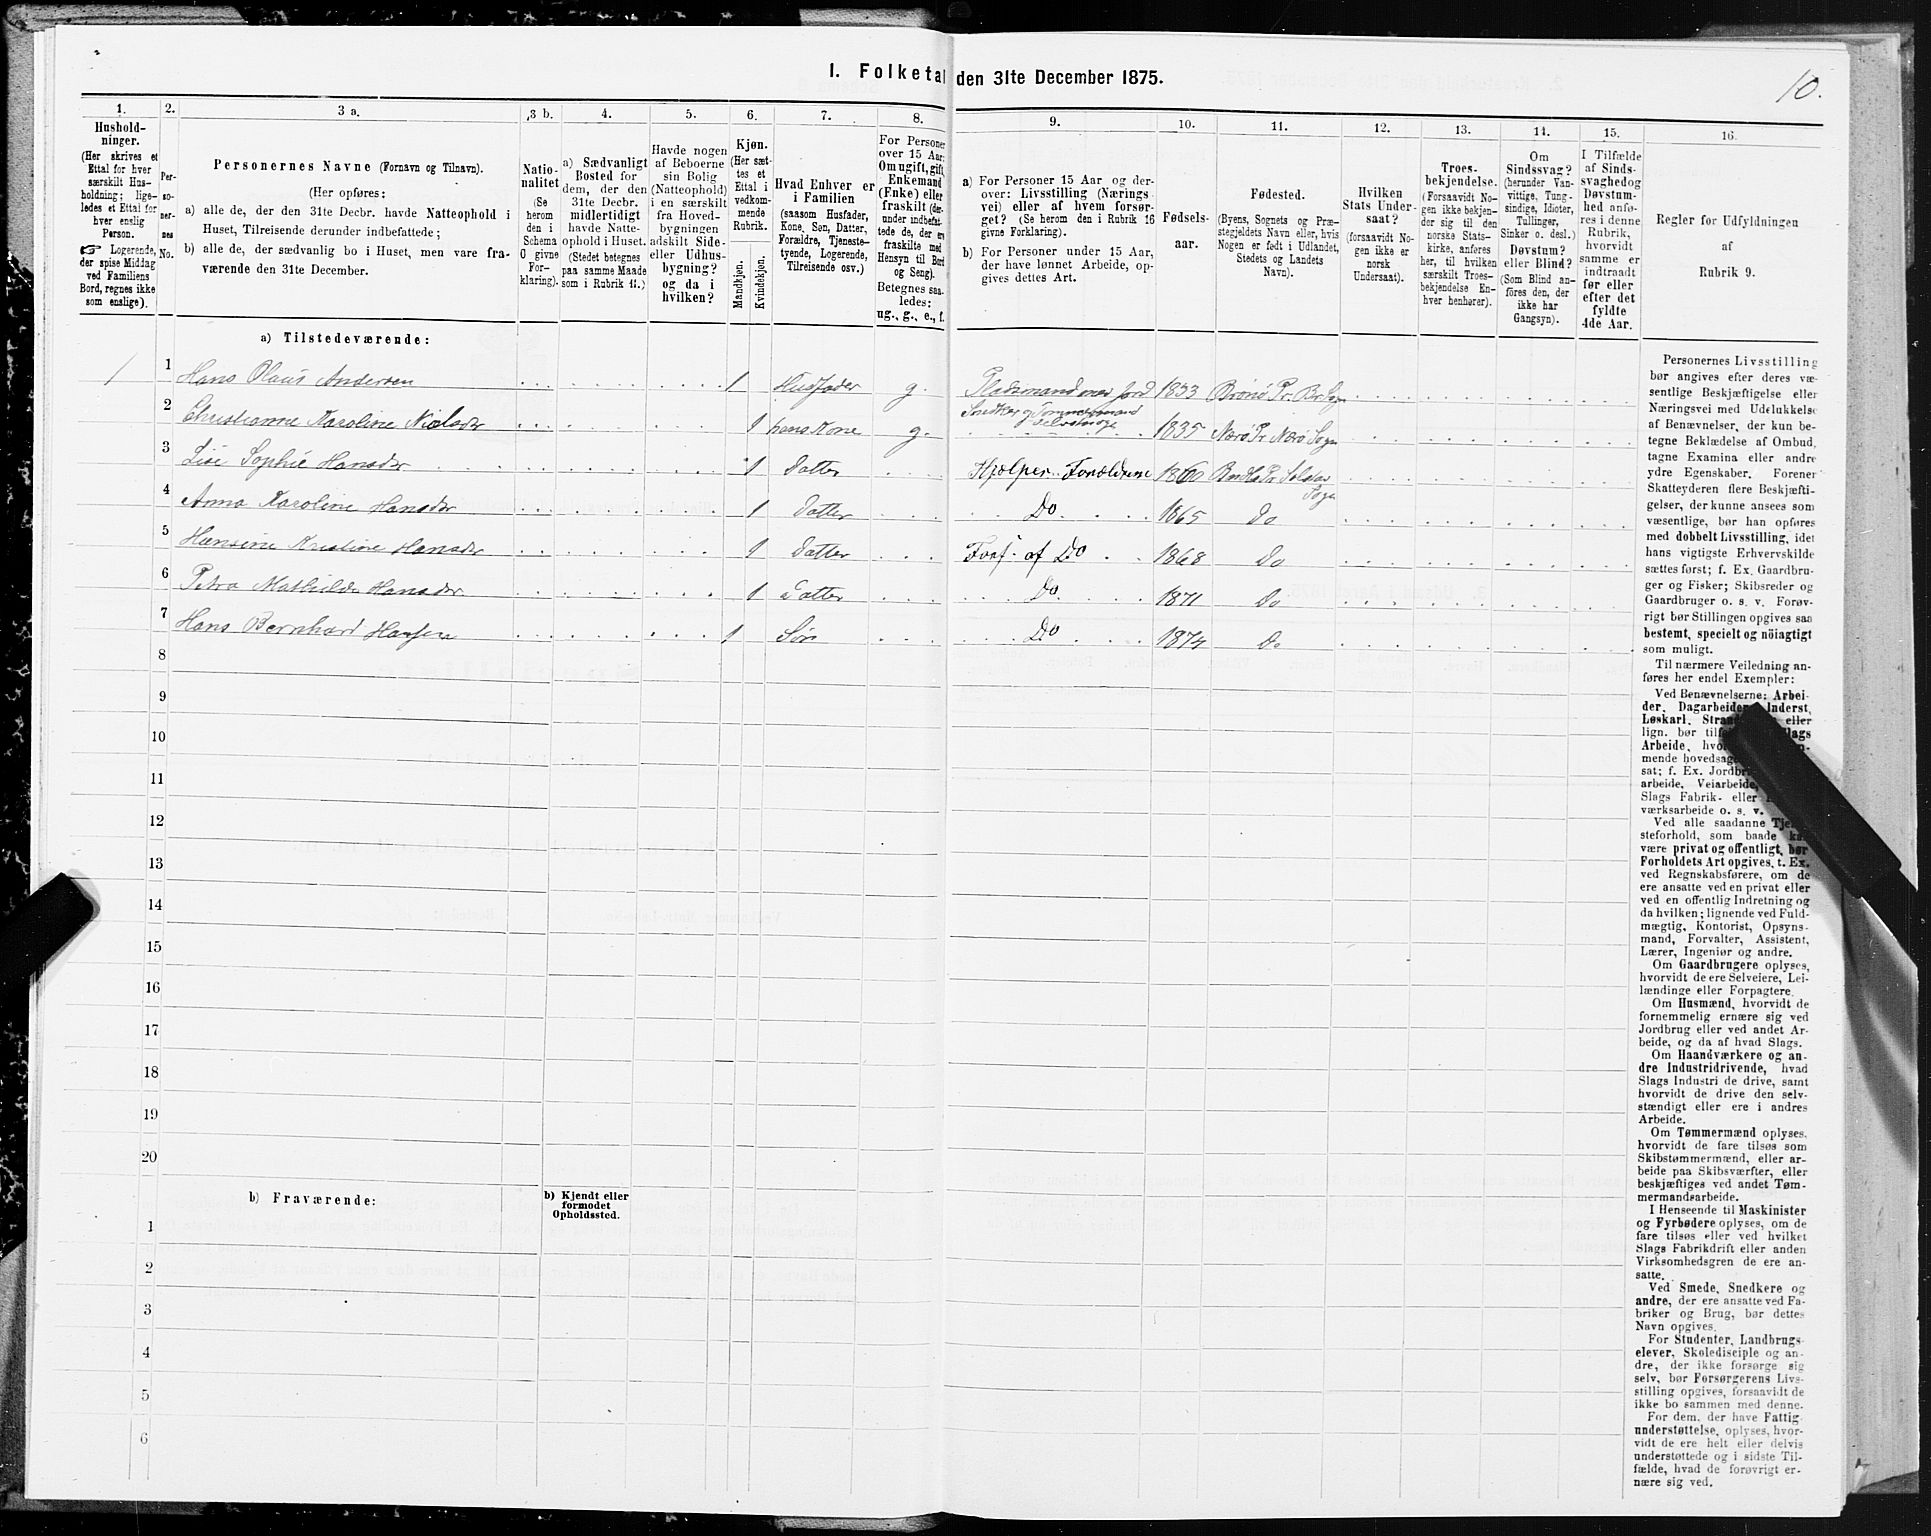 I. Folketal den 31te December 1875.
10.
1.
Hushold-
ninger.
(Her skrives et
Ettal for hver
særskilt Hus-
holdning; lige-
ledes et Ettal for
hver enslig
Person.
☞ Logerende,
der spise Middag
ved Familiens
Bord, regnes ikke
som enslige).
2.
Per-
so-
ner-
nes
No.
3 a.
Personernes Navne (Fornavn og Tilnavn).
(Her opføres:
a) alle de, der den 31te Decbr. havde Natteophold i
Huset, Tilreisende derunder indbefattede;
b) alle de, der sædvanlig bo i Huset, men vare fra-
værende den 31te December.
3 b.
Natio-
nalitet
(Se
herom
den i
Schema
O givne
For-
klaring).
4.
a) Sædvanligt
Bosted for
dem, der den
31te Decbr.
midlertidigt
havde Natte-
ophold i Huset.
(Stedet betegnes
paa samme Maade
som i Rubrik 11.)
5.
Havde nogen
af Beboerne
sin Bolig
(Natteophold)
i en særskilt
fra Hoved-
bygningen
adskilt Side-
eller Udhus-
bygning?
og da i
hvilken?
6.
Kjøn.
(Her sæt-
tes et
Ettal i
vedkom-
mende
Rubrik.
Mandkjøn.
Kvindekjøn.
7.
Hvad Enhver er
i Familien
(saasom Husfader,
Kone, Søn, Datter,
Forældre, Tjeneste-
tyende, Logerende,
Tilreisende osv.)
8.
For Personer
over 15 Aar:
Om ugift, gift,
Enkemand
(Enke) eller
fraskilt (der-
under indbefat-
tede de, der ere
fraskilte med
Hensyn til Bord
og Seng).
Betegnes saa-
ledes:
ug., g., e., f.
9.
a) For Personer 15 Aar og der-
over: Livsstilling (Nærings-
vei) eller af hvem forsør-
get? (Se herom den i Rubrik 16
givne Forklaring).
b) For Personer under 15 Aar,
der have lønnet Arbeide, op-
gives dettes Art.
10.
Fødsels-
aar.
11.
Fødested.
(Byens, Sognets og Præ-
stegjeldets Navn eller, hvis
Nogen er født i Udlandet,
Stedets og Landets
Navn).
12.
Hvilken
Stats Under-
saat?
(forsaavidt No-
gen ikke er
norsk
Undersaat).
13.
Troes-
bekjendelse.
(Forsaavidt No-
gen ikke bekjen-
der sig til den
norske Stats-
kirke, anføres
her, til hvilken
særskilt Troes-
bekjendelse En-
hver henhører).
14.
Om
Sindssvag?
(herunder Van-
vittige, Tung-
sindige, Idioter,
Tullinger,
Sinker o. desl.)
Døvstum?
eller Blind?
(Som Blind an-
føres den, der
ikke har
Gangsyn).
15.
I Tilfælde
af Sinds-
svaghed og
Døvstum-
hed anfø-
res i denne
Rubrik,
hvorvidt
samme er
indtraadt
før eller
efter det
fyldte
4de Aar.
16.
Regler for Udfyldningen
af
Rubrik 9.
a) Tilstedeværende:
1 1 Hans Olaus Andersen 1 Husfader g. Pladsmand med Jord 1833 Brønø Pr. Br. Sogn
Snedker og Tømmermand
2 Christianne Karoline Nielsdr 1 hans Kone g. 1835 Nærø Pr. Nærø Sogn
3 Lise Sophie Hansdr 1 Datter Hjælper Forældrene 1860
Sogn
4 Anna Karoline Hansdr 1 Datter Do 1865 Do
5 Hansine Kristine Hansdr 1 Datter Fors. af Do 1868 Do
6 Petra Mathilde Hansdr 1 Datter Do 1871 Do
7 Hans Bernhard Hansen 1 Søn Do 1874 Do
8
9
10
11
12
13
14
15
16
17
18
19
20
b) Fraværende:
b) Kjendt eller
formodet
Opholdssted.
1
2
3
4
5
6
Personernes Livsstilling
bør angives efter deres væ-
sentlige Beskjæftigelse eller
Næringsvei med Udelukkelse
af Benævnelser, der kun be-
tegne Beklædelse af Ombud,
tagne Examina eller andre
ydre Egenskaber. Forener
Skatteyderen flere Beskjæfti-
gelser, der kunne ansees som
væsentlige, bør han opføres
med dobbelt Livsstilling, idet
hans vigtigste Erhvervskilde
sættes først; f. Ex. Gaardbru-
ger og Fisker; Skibsreder og
Gaardbruger o. s. v. Forøv-
rigt bør Stillingen opgives saa
bestemt, specielt og nöiagtigt
som muligt.
Til nærmere Veiledning an-
føres her endel Exempler:
Ved Benævnelserne: Arbei-
der, Dagarbeider, Inderst,
Løskarl, Strand eller
lign. bør Slags
Arbeide,
mende hovedsag
sat; f. Ex. Jordbr
arbeide, Veiarbeide,
Slags Fabrik- eller
værksarbeide o. s. v.
Ved alle saadanne Tjene-
steforhold, som baade kan
være privat og offentligt, bør
Forholdets Art opgives, t. Ex.
ved Regnskabsførere, om de
ere ansatte ved en privat eller
ved en offentlig Indretning og
da hvilken; lignende ved Fuld-
mægtig, Kontorist, Opsyns-
mand, Forvalter, Assistent,
Lærer, Ingeniør og andre.
Om Gaardbrugere oplyses,
hvorvidt de ere Selveiere, Lei-
lændinge eller Forpagtere.
Om Husmænd, hvorvidt de
fornemmelig ernære sig ved
Jordbrug eller ved andet Ar-
beide, og da af hvad Slags.
Om Haandværkere og an-
dre Industridrivende, hvad
Slags Industri de drive, samt
hvorvidt de drive den selv-
stændigt eller ere i andres
Arbeide.
Om Tømmermænd oplyses,
hvorvidt de fare tilsøs som
Skibstømmermænd, eller ar-
beide paa Skibsværfter, eller
beskjæftiges ved andet Tøm-
mermandsarbeide.
I Henseende til Maskinister
og Fyrbødere oplyses, om de
fare tilsøs eller ved hvilket
Slags Fabrikdrift eller anden
Virksomhedsgren de ere an-
satte.
Ved Smede, Snedkere og
andre, der ere ansatte ved Fa-
briker og Brug, bør dettes
Navn opgives.
For Studenter, Landbrugs-
elever, Skoledisciple og an-
dre, der ikke forsørge sig
selv, bør Forsørgerens Livs-
stilling opgives, forsaavidt de
ikke bo sammen med denne.
For dem, der have Fattig-
understøttelse, oplyses, hvor-
vidt de ere helt eller delvis
understøttede og i sidste Til-
fælde, hvad de forøvrigt er-
nære sig ved.